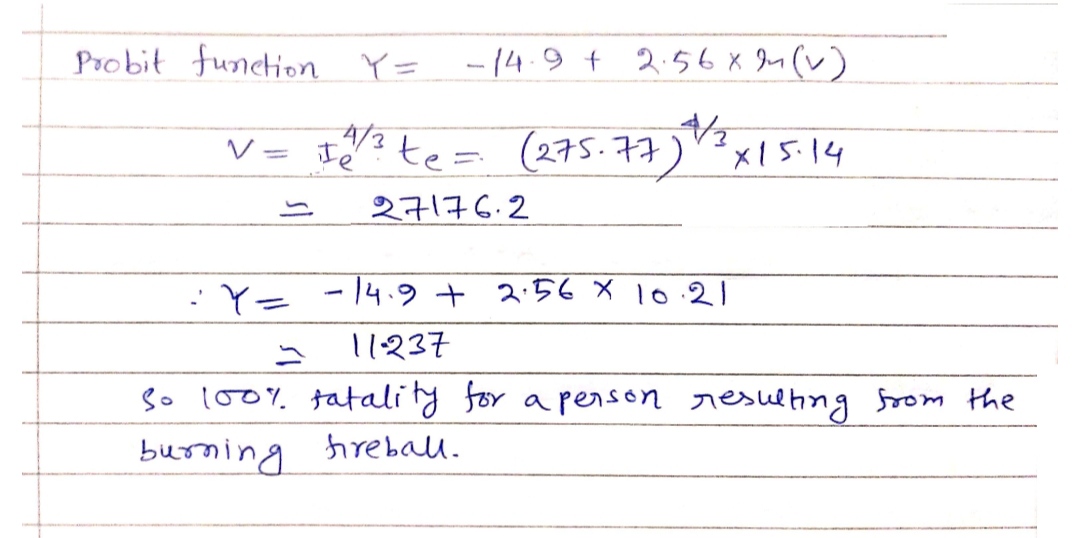 Probit function Y = -14.9 + 2.56 x ln(v)
V = Ie^4/3 te = (275.77)^4/3 x 15.14
= 27176.2
∴ Y = -14.9 + 2.56 x 10.21
= 11.237
So 100% fatality for a person resulting from the
burning fireball.